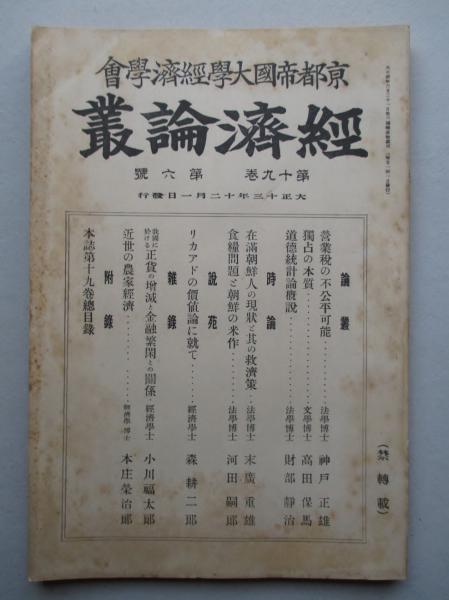 會學濟經學大國帝都京
叢論濟經
號六第　卷九十第
行發日一月二十年三十正大
論叢
營業稅の不公平可能………法學博士　神戶正雄
獨占の本質………文學博士　高田保馬
道德統計論槪說………法學博士　財部靜治
時論
在滿朝鮮人の現狀と其の救濟策‥法學博士　末廣重雄
食糧問題と朝鮮の米作………法學博士　河田嗣郞
說苑
リカアドの價値論に就て………經濟學士　森耕二郞
雜錄
我國に於ける正貨の增減と金融繁閑との關係‥經濟學士　小川福太郞
近世の農家經濟………經濟學博士　本庄榮治郞
附錄
本誌第十九卷總目錄
（禁轉載）